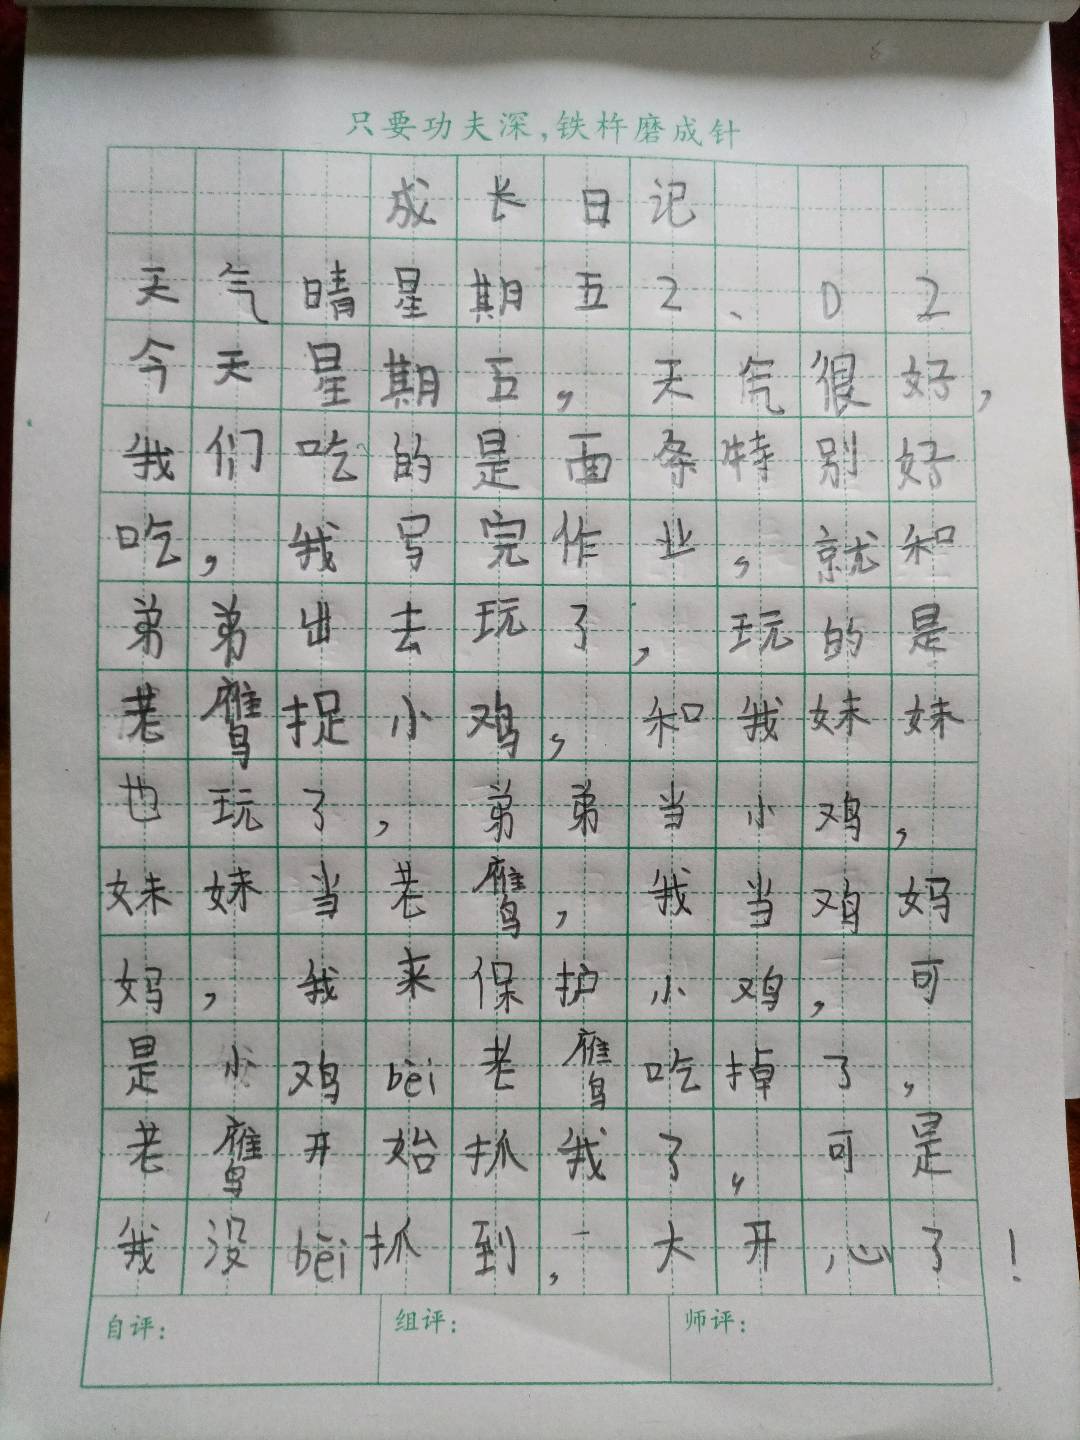 只要功夫深,铁杵磨成针
成长日记
天气晴星期五2、02
今天星期五,天气很好,
我们吃的是面条特别好
吃,我写完作业,就和
弟弟出去玩了,玩的是
老鹰捉小鸡,和我妹妹
也玩了,弟弟当小鸡,
妹妹当老鹰,我当鸡妈
妈,我来保护小鸡,可
是小鸡bèi老鹰吃掉了,
老鹰开始抓我了,可是
我没bèi抓到,太开心了!
自评: 组评: 师评: